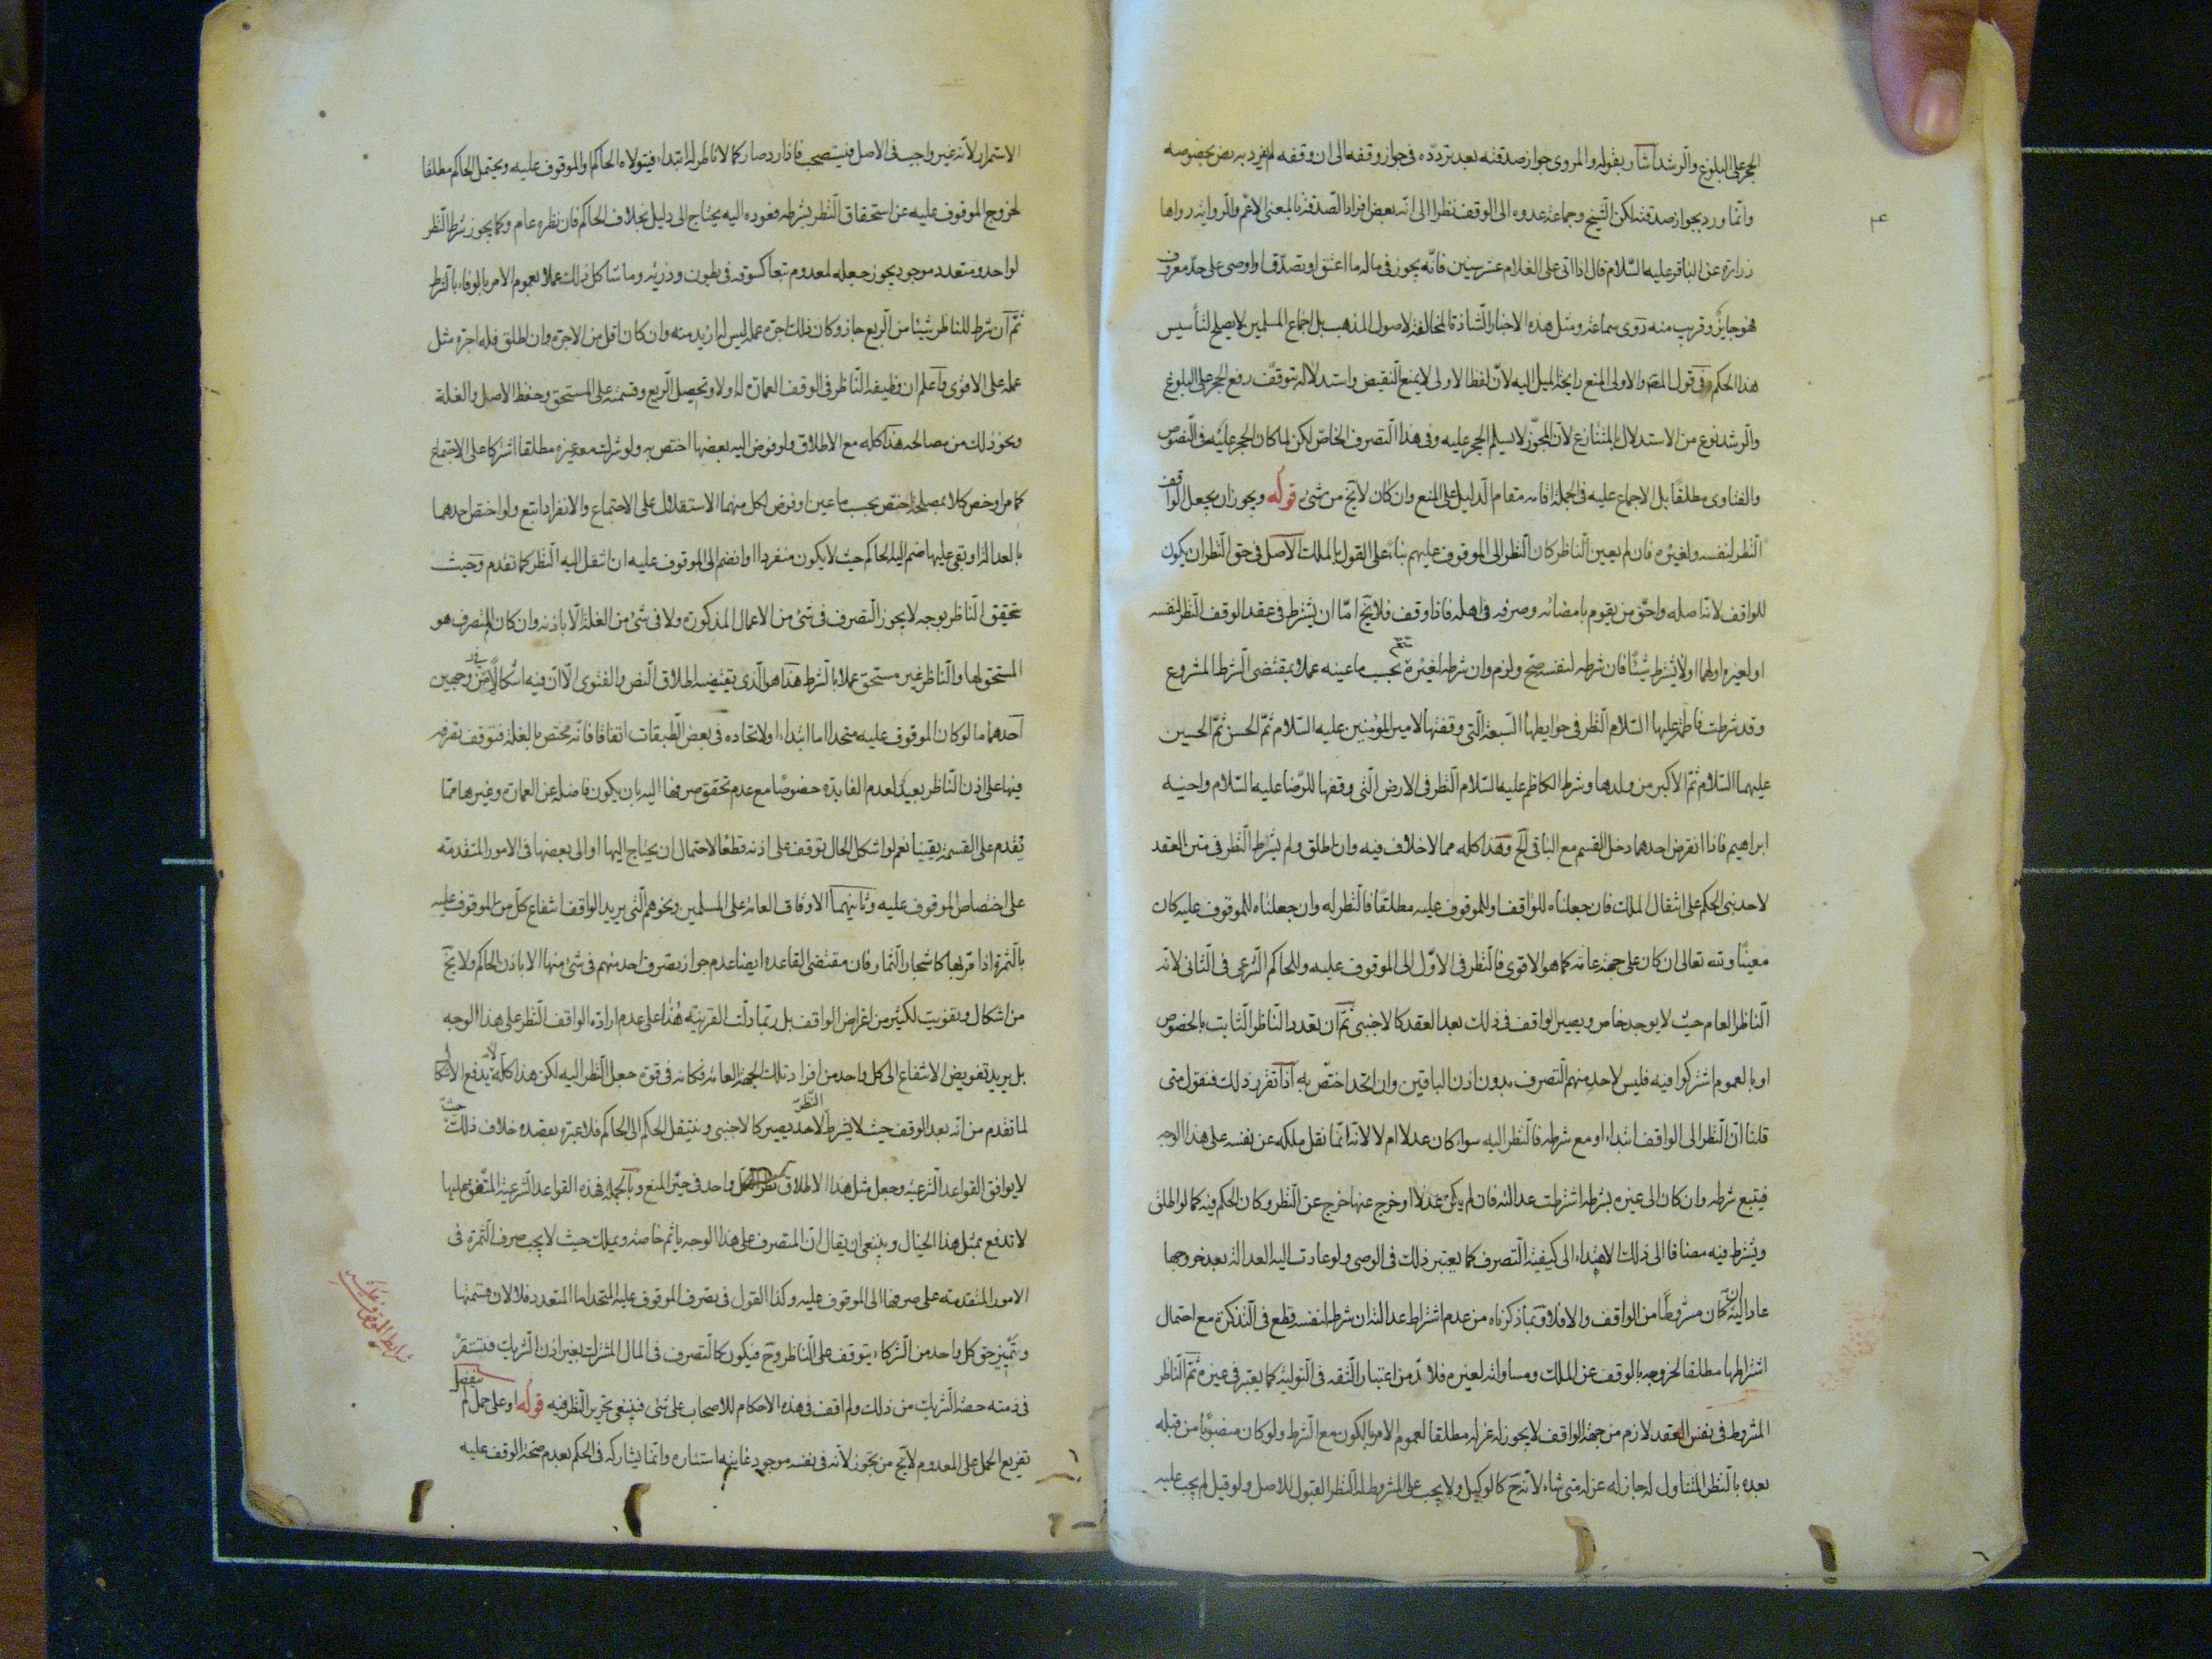 الحجر على البلوغ والرشد اشار بقوله والمروى جواز صدقته بعد تردده فى جواز وقفه الى ان وقفه لم يرد به نص بخصوصه
وانما ورد بجواز صدقته لكن الشيخ وجماعة عدوه الى الوقف نظرا الى انه بعض افراد الصدقة بالمعنى الاعم والرواية رواها
زرارة عن الباقر عليه السلام قال اذا اتى على الغلام عشر سنين فانه يجوز فى ماله ما اعتق او تصدق او اوصى على حد معروف
فهو جايز وقريب منه روى سماعة ومثل هذه الاخبار الشاذة المخالفة لاصول المذهب بل اجماع المسلمين لا يصلح لتأسيس
هذا الحكم وفى قول المص والاولى المنع رايحة الميل اليه لان لفظ الاولى لا يمنع النقيض واستدلاله بتوقف رفع الحجر على البلوغ
والرشد نوع من الاستدلال بالمتنازع لان المجوز لا يسلم الحجر عليه فى هذا التصرف الخاص لكن لما كان الحجر عليه فى النصوص
والفتاوى مطلقا بل الاجماع عليه فى الجملة اقامه مقام الدليل على المنع وان كان لا يخ من شئ قوله ويجوز ان يجعل الواقف
النظر لنفسه ولغيره فان لم يعين الناظر كان النظر الى الموقوف عليهم بناء على القول بالملك الاصل فى حق النظر ان يكون
للواقف لانه اصله واحق من يقوم بامضائه وصرفه فى اهله فاذا وقف فلا يخ اما ان يشترط فى عقد الوقف النظر لنفسه
او لغيره او لهما او لا يشترط شيئا فان شرطه لنفسه صح ولزم وان شرطه لغيره بحسب ما عينه عملا بمقتضى الشرط المشروع
وقد شرطت فاطمة عليها السلام النظر فى حوايطها السبعة التى وقفتها لامير المؤمنين عليه السلام ثم الحسن ثم الحسين
عليهما السلام ثم الاكبر من ولدها وشرط الكاظم عليه السلام النظر فى الارض التى وقفها للرضا عليه السلام واخيه
ابراهيم فاذا انقرض احدهما دخل القسم مع الباقى الخ وهذا كله مما لا خلاف فيه وان اطلق ولم يشترط النظر فى متن العقد
لاحد بنى الحكم على انتقال الملك فان جعلناه للواقف او للموقوف عليه مطلقا فالنظر له وان جعلناه للموقوف عليه كان
معينا ولله تعالى ان كان على جهة عامة كما هو الاقوى فالنظر فى الاول الى الموقوف عليه وللحاكم الشرعى فى الثانى لانه
الناظر العام حيث لا يوجد خاص ويصير الواقف فى ذلك بعد العقد كالاجنبى ثم ان تعدد الناظر الثابت بالخصوص
او بالعموم اشتركوا فيه فليس لاحد منهم التصرف بدون اذن الباقين وان اتحد اختص به اذا تقرر ذلك فنقول متى
قلنا ان النظر الى الواقف ابتداء او مع شرطه فالنظر اليه سواء كان عدلا ام لا لانه انما نقل ملكه عن نفسه على هذا الوجه
فيتبع شرطه وان كان الى غيره بشرطه اشترطت عدالته فان لم يكن عدلا او خرج عنها خرج عن النظر وكان الحكم فيه كما لو اطلق
ويشترط فيه مضافا الى ذلك الاهتداء الى كيفية التصرف كما يعتبر ذلك فى الوصى ولو عادت اليه العدالة بعد خروجها
عاد اليه ان كان مشروطا من الواقف والا فلا وبما ذكرناه من عدم اشتراط عدالته ان شرطه لنفسه قطع فى التذكرة مع احتمال
اشتراطها مطلقا لخروجه بالوقف عن الملك ومساواته لغيره فلا بد من اعتبار الثقة فى التولية كما يعتبر فى غيره ثم الناظر
المشروط فى نفس العقد لازم من جهة الواقف لا يجوز له عزله مطلقا لعموم الامر بالكون مع الشرط ولو كان منصوبا من قبله
بعده بالنظر المتناول له جاز له عزله متى شاء لانه ح كالوكيل ولا يجب على المشروط له النظر القبول للاصل ولو قيل لم يجب عليه
الاستمرار لانه غير واجب فى الاصل فيستصحب فاذا رد صار كما لا ناظر له ابتداء فيتولاه الحاكم او الموقوف عليه ويحتمل الحاكم مطلقا
لخروج الموقوف عليه عن استحقاق النظر بشرطه فعوده اليه يحتاج الى دليل بخلاف الحاكم فان نظره عام وكما يجوز شرط النظر
لواحد ومتعدد موجود يجوز جعله لمعدوم تبعا كسوقه فى بطون وذريه وما شاكل ذلك عملا بعموم الامر بالوفاء بالشرط
ثم ان شرط للناظر شيئا من الريع جاز وكان ذلك اجرة عمله ليس له ازيد منه وان كان اقل من الاجرة وان اطلق فله اجرة مثل
عمله على الاقوى واعلم ان وظيفة الناظر فى الوقف العمارة له اولا وتحصيل الريع وقسمته على المستحق وحفظ الاصل والغلة
ونحو ذلك من مصالحه هذا كله مع الاطلاق ولو فوض اليه بعضها اختص به ولو شرك معه غيره مطلقا اشتركا على الاجتماع
كما مر او خص كلا بمصلحة اختص بحسب ما عين او فوض لكل منهما الاستقلال على الاجتماع والانفراد اتبع ولو اختص احدهما
بالعدالة او بقى عليها ضم اليه الحاكم حيث لا يكون منفردا او انضم الى الموقوف عليه ان انتقل اليه النظر كما تقدم وحيث
تحقق الناظر بوجه لا يجوز التصرف فى شئ من الاعمال المذكورة ولا فى شئ من الغلة الا باذنه وان كان المتصرف هو
المستحق لها والناظر غير مستحق عملا بالشرط هذا هو الذى يقتضيه اطلاق النص والفتوى الا ان فيه اشكالا من وجهين
احدهما ما لو كان الموقوف عليه متحدا اما ابتداء او لاتحاده فى بعض الطبقات اتفاقا فانه مختص بالغلة فتوقف تصرفه
فيها على اذن الناظر بعيد لعدم الفايدة خصوصا مع عدم تحقق صرفها اليه بان يكون فاضلة عن العمارة وغيرها مما
يقدم على القسمة يقينا نعم لو اشكل الحال توقف على اذنه قطعا لاحتمال ان يحتاج اليها او الى بعضها فى الامور المتقدمة
على اختصاص الموقوف عليه وثانيهما الاوقاف العامة على المسلمين ونحوهم التى يريد الواقف انتفاع كل من الموقوف عليه
بالثمرة اذا مر بها كاشجار الثمار فان مقتضى القاعدة ايضا عدم جواز تصرف احد منهم فى شئ منها الا باذن الحاكم ولا يخ
من اشكال وتفويت لكثير من اغراض الواقف بل ربما دلت القرينة هنا على عدم ارادة الواقف النظر على هذا الوجه
بل يريد تفويض الانتفاع الى كل واحد من افراد تلك الجهة العامة فكانه فى قوة جعل النظر اليه لكن هذا كله لا يدفع الاشكال
لما تقدم من انه بعد الوقف حيث لا يشترط النظر لاحد يصير كالاجنبى وينتقل الحكم الى الحاكم فلا عبرة بقصده خلاف ذلك حيث
لا يوافق القواعد الشرعية وجعل مثل هذا الاطلاق واحد فى حيز المنع وبالجملة فهذه القواعد الشرعية المتفق عليها
لا تدفع بمثل هذا الخيال وينبغى ان يقال ان المتصرف على هذا الوجه ياثم خاصة ويملك حيث لا يجب صرف الثمرة فى
الامور المتقدمة على صرفها الى الموقوف عليه وكذا القول فى تصرف الموقوف عليه المتحد اما المتعدد فلا لان قسمتها
وتميز حق كل واحد من الشركاء يتوقف على الناظر وح فيكون كالتصرف فى المال المشترك بغير اذن الشريك فتستقر
فى ذمته حصة الشريك من ذلك ولم اقف فى هذه الاحكام للاصحاب على شئ فينبغى تحرير النظر فيه قوله او على حمل لم ينفصل
تفريع الحمل على المعدوم لا يخ من تجوز لانه فى نفسه موجود غايته استتاره وانما يشاركه فى الحكم بعدم صحة الوقف عليه
شرايط الموقوف عليه